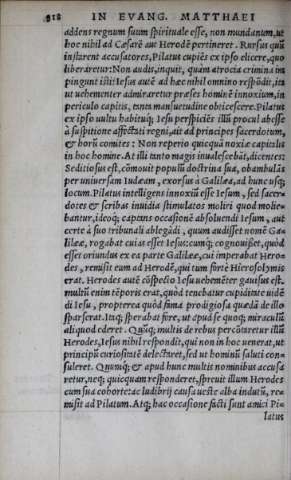 318 IN EVANG. MATTHAEI
addens regnum suum spirituale esse, non mundanum, ut
hoc nihil ad Cæsarē aut Herodē pertineret. Rursus quū
instarent accusatores, Pilatus cupiēs ex ipso elicere, quo
liberaretur: Non audis, inquit, quàm atrocia crimina im
pingunt isti? Iesus autē ad hæc nihil omnino respōdit, ita
ut uehementer admiraretur præses hominē innoxium, in
periculo capitis, tanta mansuetudine obticescere. Pilatus
ex ipso uultu habituq; Iesu perspiciēs illū procul abesse
à suspitione affectati regni, ait ad principes sacerdotum,
& horū comites: Non reperio quicquā noxiæ capitalis
in hoc homine. At illi tanto magis inualescebāt, dicentes:
Seditiosus est, cōmouit populū doctrina sua, obambulās
per uniuersam Iudæam, exorsus à Galilæa, ad hunc usq;
locum. Pilatus intelligens innoxiū esse Iesum, sed sacer-
dotes & scribas inuidia stimulatos moliri quod molie-
bantur, ideoq; captans occasionē absoluendi Iesum, aut
certe à suo tribunali ablegādi, quum audisset nomē Ga-
lilææ, rogabat cuias esset Iesus: cumq; cognouisset, quòd
esset oriundus ex ea parte Galilææ, cui imperabat Hero-
des, remisit eum ad Herodē, qui tum fortè Hierosolymis
erat. Herodes autē cōspecto Iesu uehemēter gauisus est.
multū enim tēporis erat, quòd tenebatur cupiditate uidē
di Iesu, propterea quòd fama prodigiosa quædā de illo
sparserat. Itaq; sperabat fore, ut apud se quoq; miraculū
aliquod ederet. Quūq; multis de rebus percōtaretur illū
Herodes, Iesus nihil respondit, qui non in hoc uenerat, ut
principū curiositatē delectaret, sed ut hominū saluti con-
suleret. Quumq; & apud hunc multis nominibus accusa
retur, neq; quicquam responderet, spreuit illum Herodes
cum sua cohorte: ac ludibrij causa ueste alba indutū, re-
misit ad Pilatum. Atq; hac occasione facti sunt amici Pi-
latus